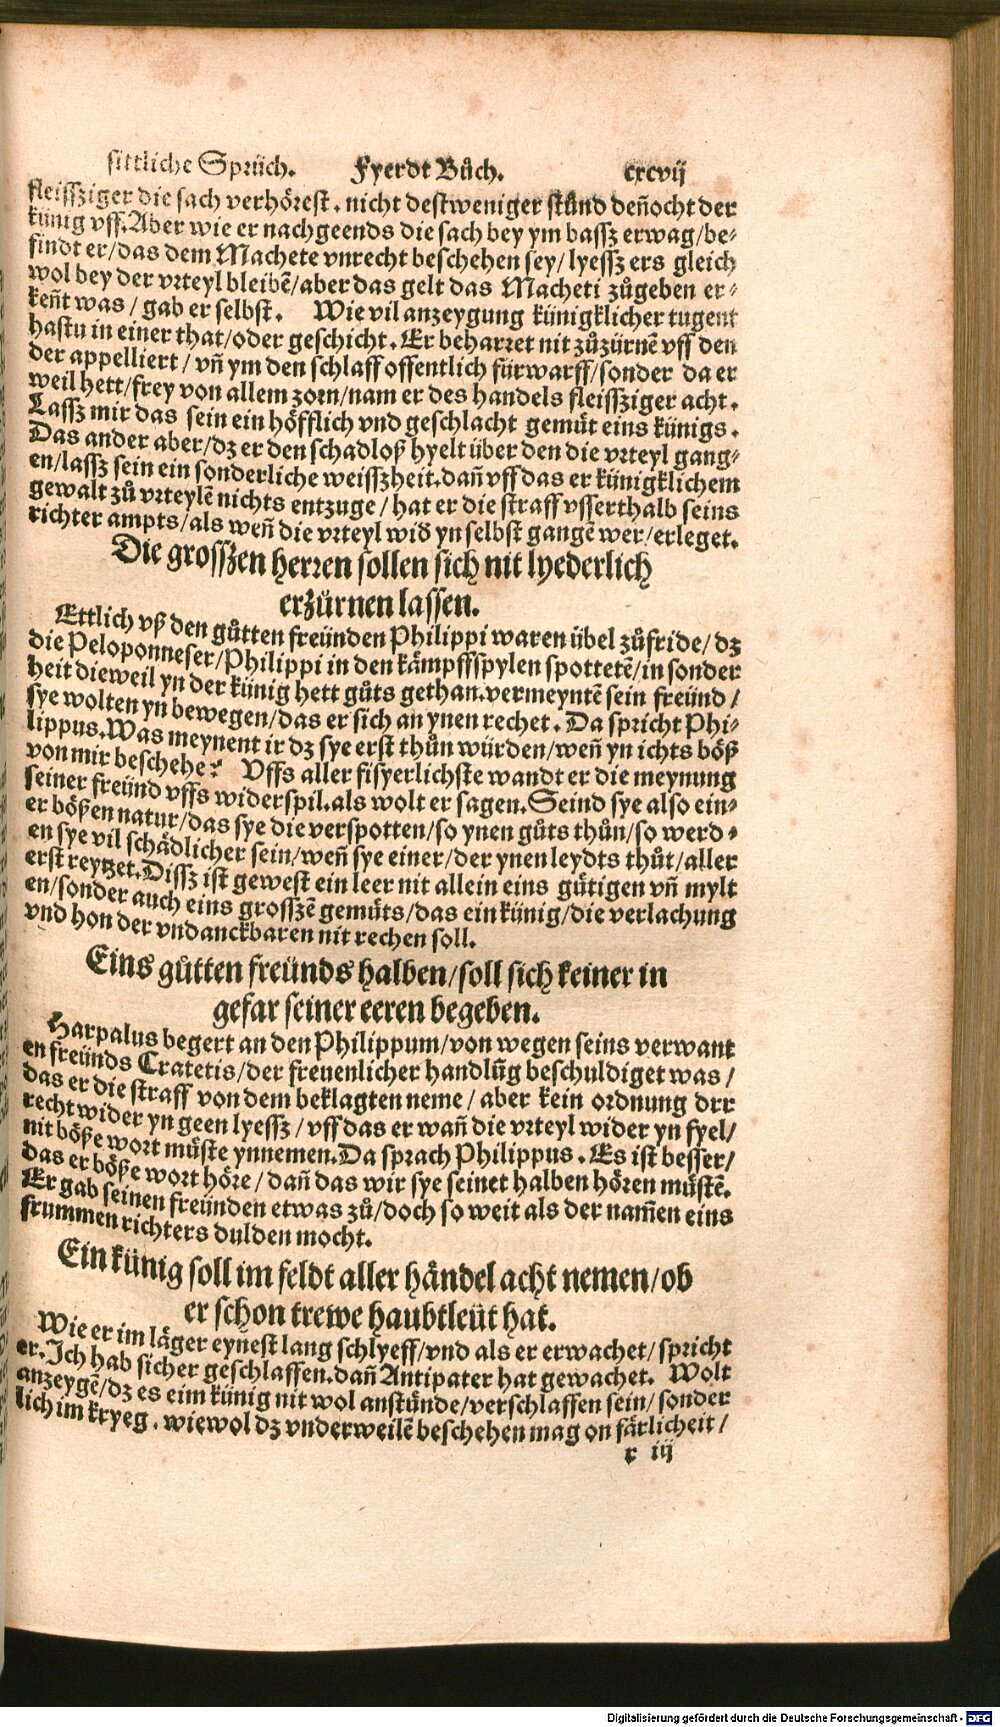 sittliche Sprüch. Fyerdt Bůch. cxcvij
fleissziger die sach verhörest. nicht destweniger stůnd deñocht der
künig vff. Aber wie er nachgeends die sach bey ym bassz erwag/be-
findt er/das dem Machete vnrecht beschehen sey/lyessz ers gleich
wol bey der vrteyl bleibẽ/aber das gelt das Macheti zůgeben er-
keñt was/ gab er selbst. Wie vil anzeygung künigklicher tugent
hastu in einer that/oder geschicht. Er beharret nit zůzürnẽ vff den
der appelliert/ vñ ym den schlaff offentlich fürwarff/sonder da er
weil hett/frey von allem zorn/nam er des handels fleissziger acht.
Lassz mir das sein ein höfflich vnd geschlacht gemüt eins künigs.
Das ander aber/dz er den schadloß hyelt über den die vrteyl gang-
en/lassz sein ein sonderliche weisszheit. dañ vff das er künigklichem
gewalt zů vrteylẽ nichts entzuge/ hat er die straff vsserthalb seins
richter ampts/als weñ die vrteyl wid yn selbst gangẽ wer/erleget.
Die grosszen herren sollen sich nit lyederlich
erzürnen lassen.
Ettlich vß den gůtten freünden Philippi waren übel zůfride/dz
die Peloponneser/Philippi in den kämpffspylen spottetẽ/in sonder
heit dieweil yn der künig hett gůts gethan. vermeyntẽ sein freünd/
sye wolten yn bewegen/das er sich an ynen rechet. Da spricht Phi-
lippus. Was meynent ir dz sye erst thůn würden/weñ yn ichts böß
von mir beschehe? Vffs aller fisyerlichste wandt er die meynung
seiner freünd vffs widerspil. als wolt er sagen. Seind sye also ein-
er bößen natur/das sye die verspotten/so ynen gůts thůn/so werd-
en sye vil schädlicher sein/weñ sye einer/der ynen leydts thůt/aller
erst reytzet. Dissz ist gewest ein leer nit allein eins gütigen vñ mylt
en/sonder auch eins grosszẽ gemüts/das ein künig/die verlachung
vnd hon der vndanckbaren nit rechen soll.
Eins gůtten freünds halben/soll sich keiner in
gefar seiner eeren begeben.
Harpalus begert an den Philippum/von wegen seins verwant
en freünds Cratetis/der freuenlicher handlũg beschuldiget was/
das er die straff von dem beklagten neme/ aber kein ordnung drr
recht wider yn geen lyessz/ vff das er wañ die vrteyl wider yn fyel/
nit böße wort müste ynnemen. Da sprach Philippus. Es ist besser/
das er böße wort höre/ dañ das wir sye seinet halben hören müstẽ.
Er gab seinen freünden etwas zů/doch so weit als der nam̃en eins
frummen richters dulden mocht.
Ein künig soll im feldt aller händel acht nemen/ob
er schon trewe haubtleüt hat.
Wie er im läger eynest lang schlyeff/vnd als er erwachet/spricht
er. Ich hab sicher geschlaffen. dañ Antipater hat gewachet. Wolt
anzeygẽ/dz es eim künig nit wol anstünde/verschlaffen sein/sonder
lich im kryeg. wiewol dz vnderweilẽ beschehen mag on färlicheit/
r iij
Digitalisierung gefördert durch die Deutsche Forschungsgemeinschaft - DFG